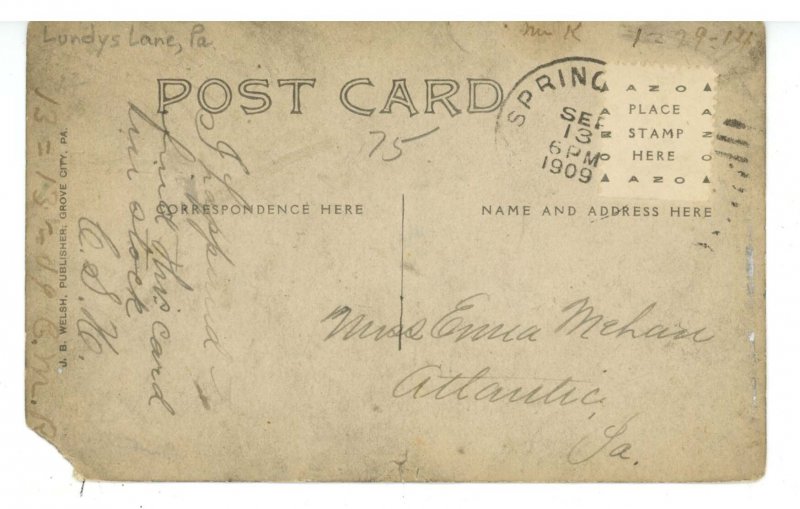 Lundys Lane, Pa
POST CARD
75
SPRING
SEP
13
6 PM
1909
AZO
PLACE
STAMP
HERE
AZO
CORRESPONDENCE HERE
NAME AND ADDRESS HERE
I happened
find this card
in stock
C.S.H.
J. B. WELSH, PUBLISHER, GROVE CITY, PA.
Miss Emia Mehan
Atlantic
Pa.